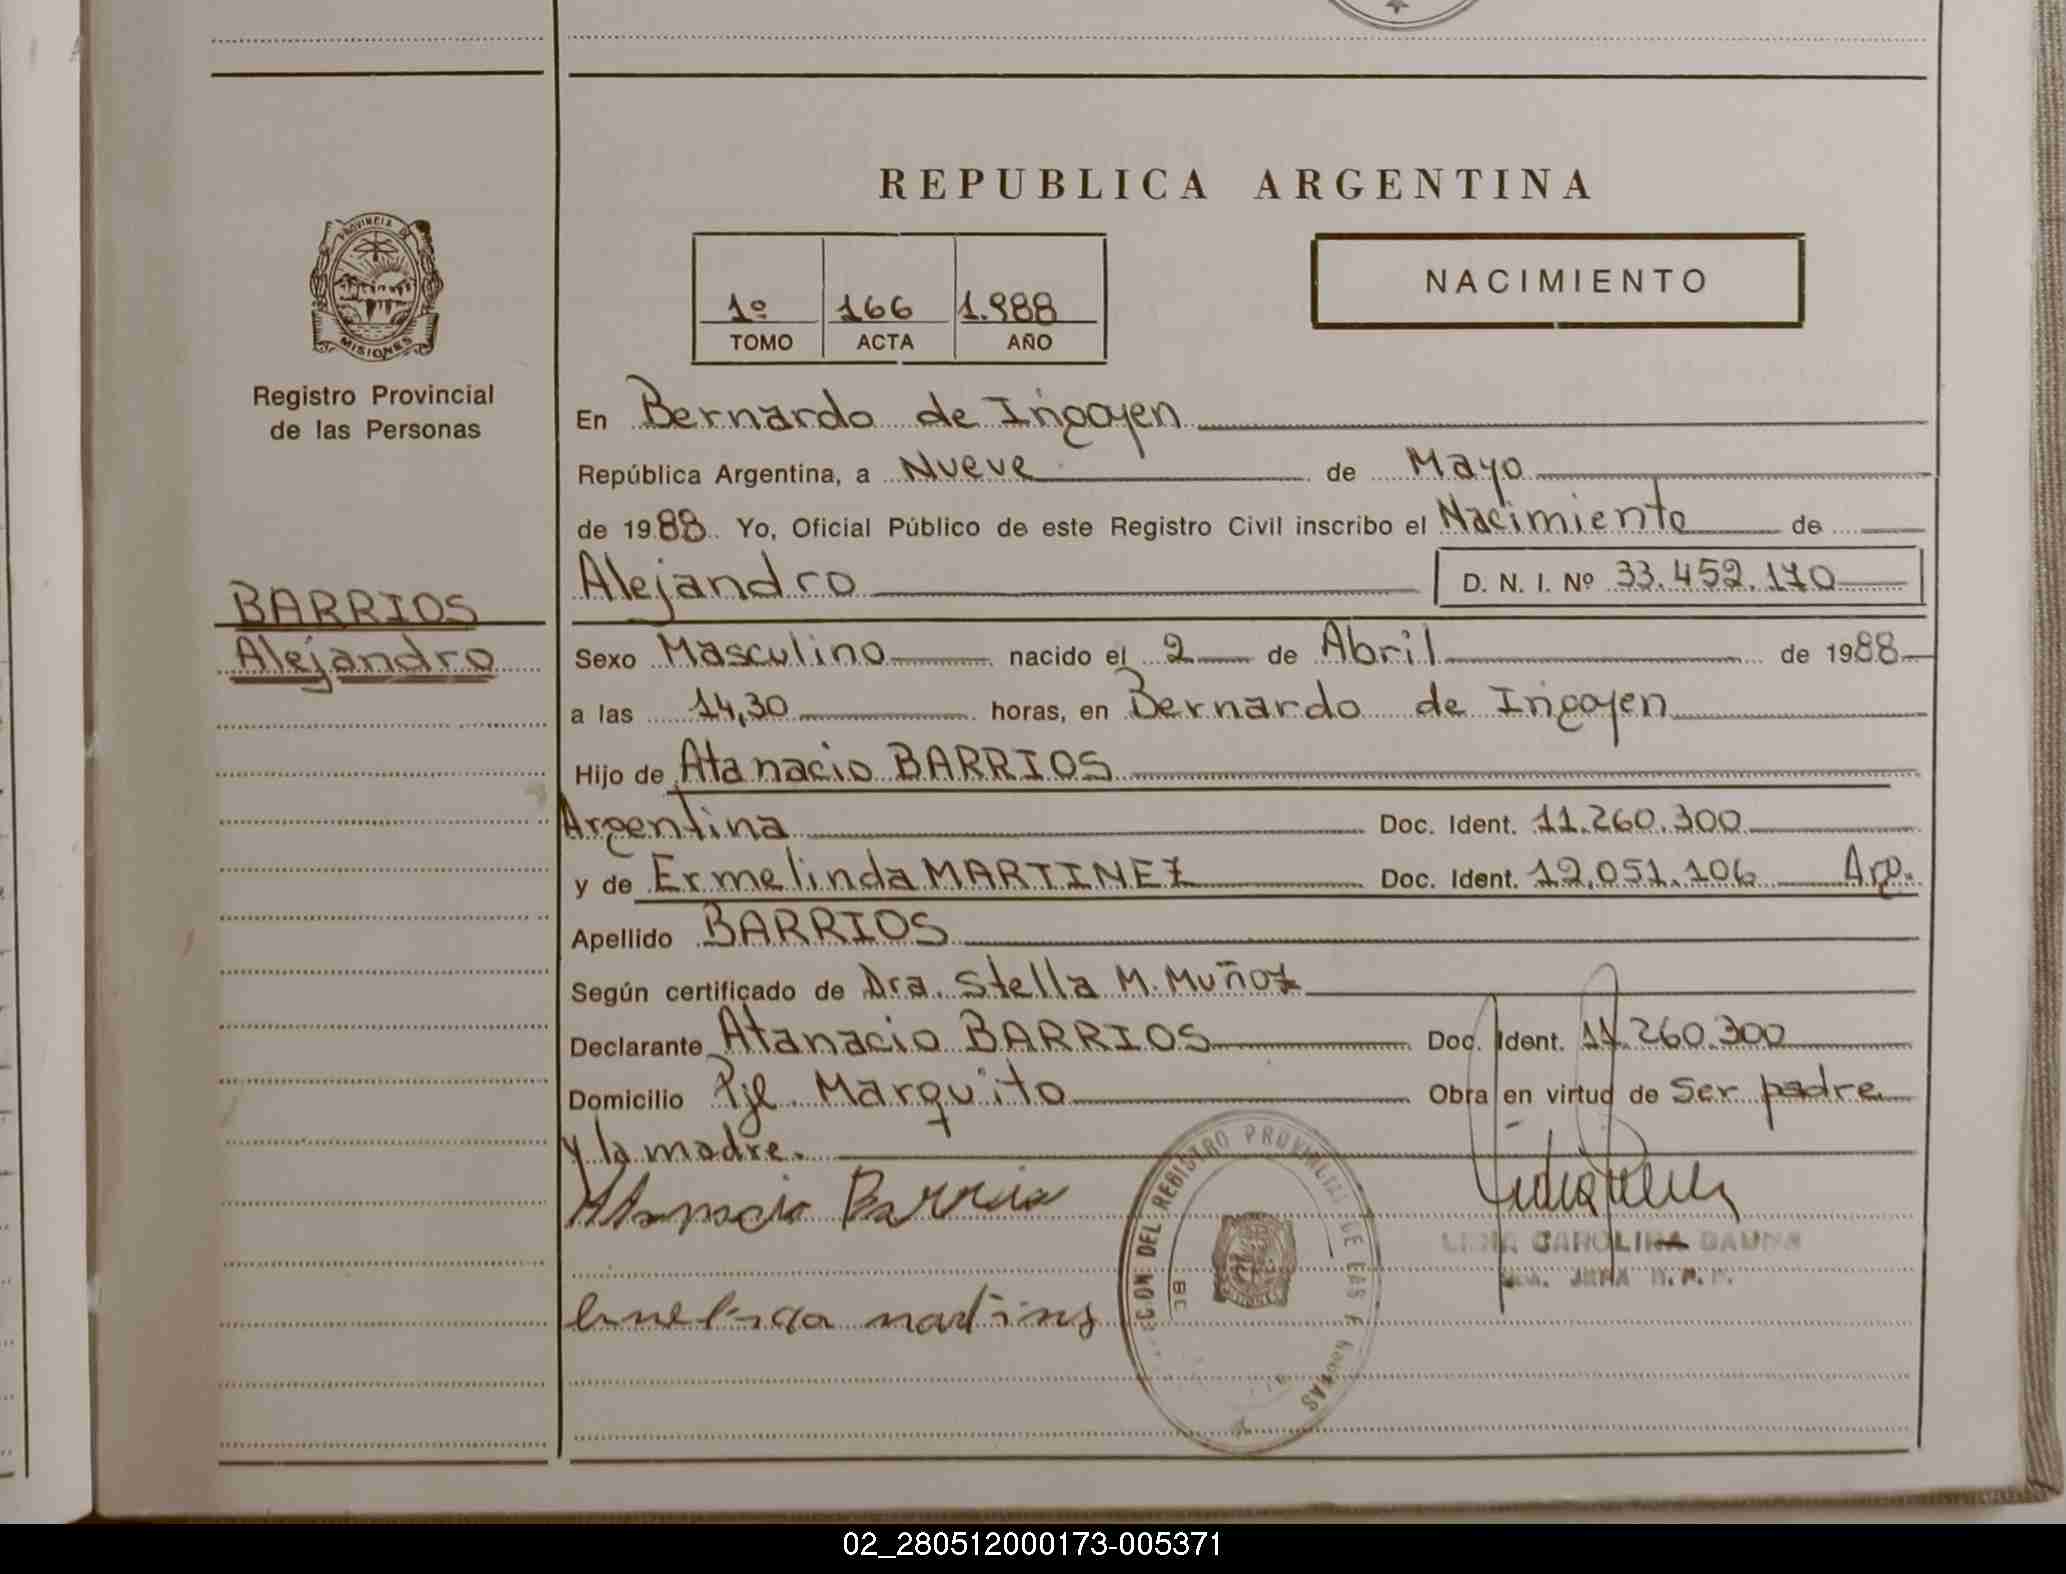 REPUBLICA ARGENTINA
PROVINCIA DE
MISIONES
Registro Provincial
de las Personas
BARRIOS
Alejandro
1º 166 1.988
TOMO ACTA AÑO
NACIMIENTO
En Bernardo de Irigoyen
República Argentina, a Nueve de Mayo
de 1988 Yo, Oficial Público de este Registro Civil inscribo el Nacimiento de
Alejandro D. N. I. Nº 33.452.170
Sexo Masculino nacido el 2 de Abril de 1988
a las 14,30 horas, en Bernardo de Irigoyen
Hijo de Atanacio BARRIOS
Argentina Doc. Ident. 11.260.300
y de Ermelinda MARTINEZ Doc. Ident. 12.051.106 Arg.
Apellido BARRIOS
Según certificado de Dra. Stella M. Muñoz
Declarante Atanacio BARRIOS Doc. Ident. 11.260.300
Domicilio Pje. Marquito Obra en virtud de Ser padre
y la madre.
Atanacio Barrios
DEL REGISTRO PROVINCIAL DE LAS
CAROLINA
02_280512000173-005371